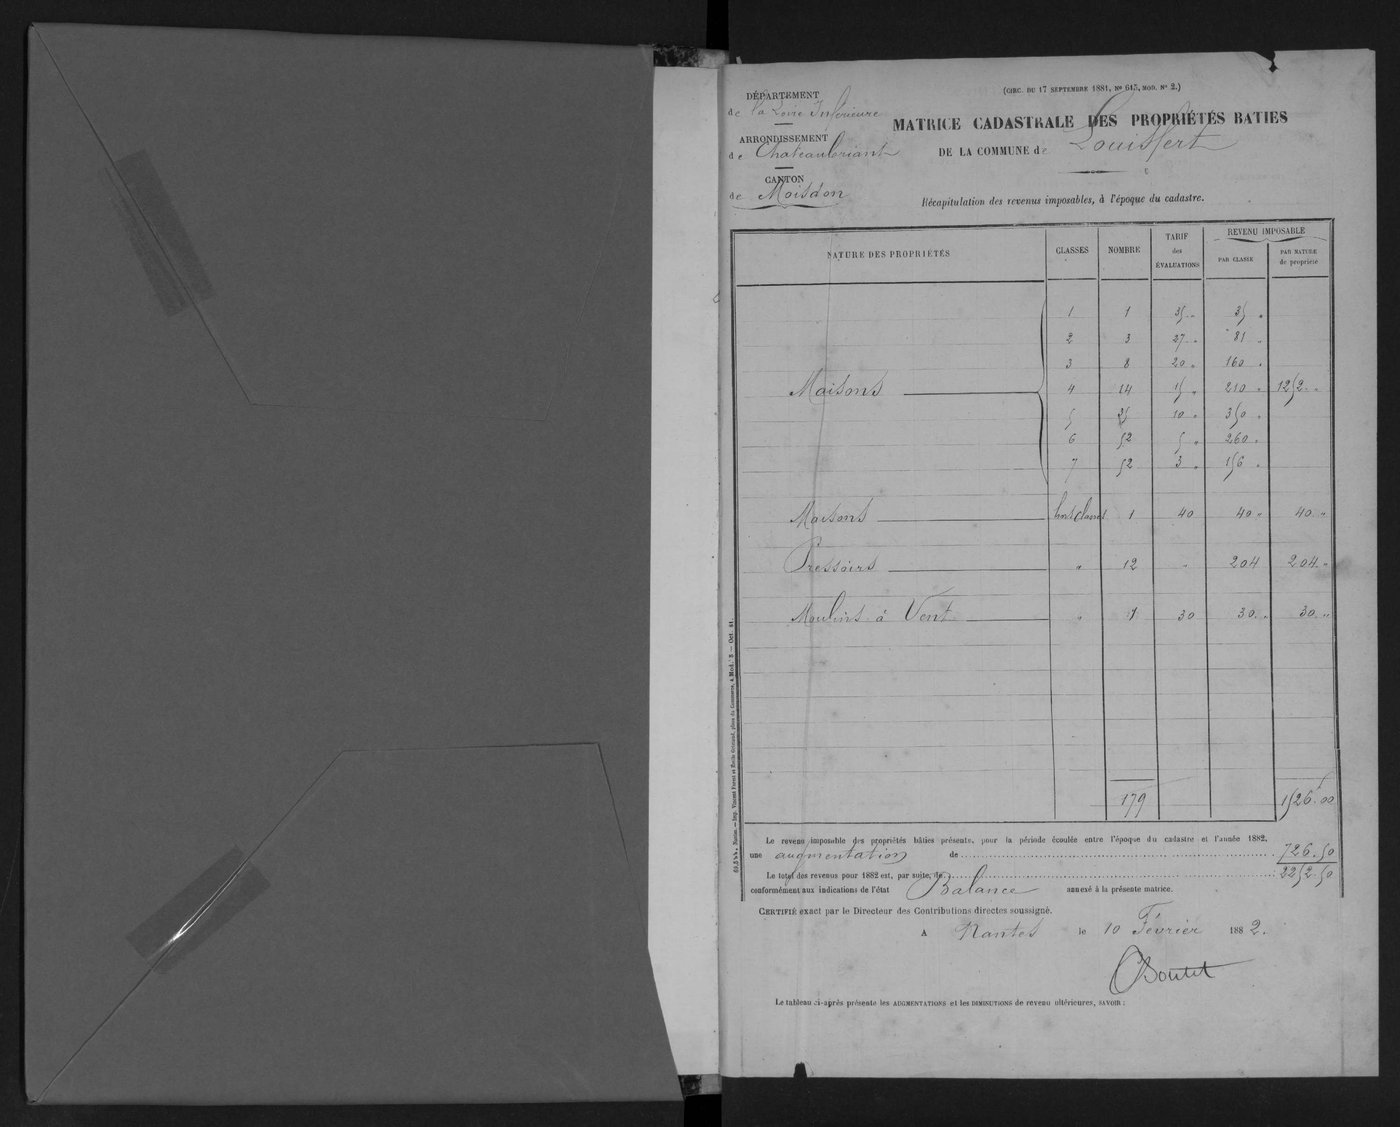 (CIRC. DU 17 SEPTEMBRE 1881, Nº 615, MOD. Nº 2.)
DÉPARTEMENT
de la Loire Inférieure
ARRONDISSEMENT
de Chateaubriant
CANTON
de Moisdon
MATRICE CADASTRALE DES PROPRIÉTÉS BATIES
DE LA COMMUNE de Louisfert
Récapitulation des revenus imposables, à l'époque du cadastre.
NATURE DES PROPRIÉTÉS CLASSES NOMBRE TARIF des ÉVALUATIONS REVENU IMPOSABLE
PAR CLASSE PAR NATURE de propriété
1 1 35 " 35 "
2 3 27 " 81 "
3 8 20 " 160 "
Maisons 4 14 15 " 210 " 1252 "
5 35 10 " 350 "
6 52 5 " 260 "
7 52 3 " 156 "
Maisons hors classes 1 40 40 " 40 "
Pressoirs " 12 " 204 204 "
Moulins à Vent " 1 30 30 " 30 "
179 1526.00
Le revenu imposable des propriétés bâties présente, pour la période écoulée entre l'époque du cadastre et l'année 1882,
une augmentation de 726.50
Le total des revenus pour 1882 est, par suite, de 2252.50
conformément aux indications de l'état Balance annexé à la présente matrice.
CERTIFIÉ exact par le Directeur des Contributions directes soussigné.
A Nantes le 10 Février 1882.
Boutet
Le tableau ci-après présente les AUGMENTATIONS et les DIMINUTIONS de revenu ultérieures, SAVOIR :